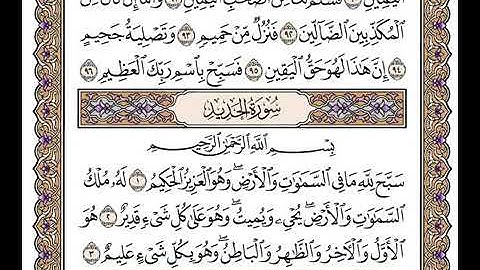 ٱلۡمُكَذِّبِينَ ٱلضَّآلِّينَ ٩٢ فَنُزُلٞ مِّنۡ حَمِيمٖ ٩٣ وَتَصۡلِيَةُ جَحِيمٍ
٩٤ إِنَّ هَٰذَا لَهُوَ حَقُّ ٱلۡيَقِينِ ٩٥ فَسَبِّحۡ بِٱسۡمِ رَبِّكَ ٱلۡعَظِيمِ ٩٦
سُورَةُ الحَدِيد
بِسۡمِ ٱللَّهِ ٱلرَّحۡمَٰنِ ٱلرَّحِيمِ
سَبَّحَ لِلَّهِ مَا فِي ٱلسَّمَٰوَٰتِ وَٱلۡأَرۡضِۖ وَهُوَ ٱلۡعَزِيزُ ٱلۡحَكِيمُ ١ لَهُۥ مُلۡكُ
ٱلسَّمَٰوَٰتِ وَٱلۡأَرۡضِۖ يُحۡيِۦ وَيُمِيتُۖ وَهُوَ عَلَىٰ كُلِّ شَيۡءٖ قَدِيرٌ ٢ هُوَ
ٱلۡأَوَّلُ وَٱلۡأٓخِرُ وَٱلظَّٰهِرُ وَٱلۡبَاطِنُۖ وَهُوَ بِكُلِّ شَيۡءٍ عَلِيمٌ ٣